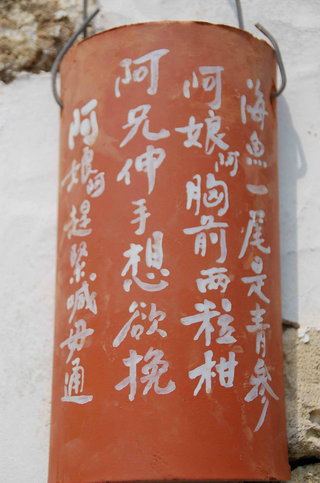 海魚一尾是青參
阿娘啊胸前兩粒柑
阿兄伸手想欲挽
阿娘啊趕緊喊毋通